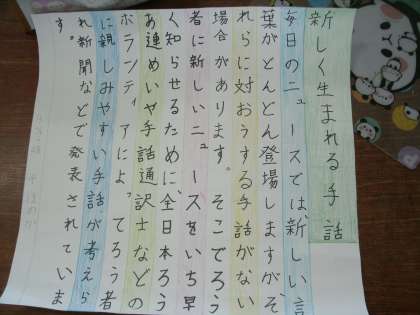 新しく生まれる手話
毎日のニュースでは、新しい言
葉がどんどん登場しますがそ、
れらに対おうする手話がない
場合があります。そこでろう
者に新しいニュースをいち早
く知らせるために、全日本ろう
あ連めいや手話通訳士などの
ボランティアによってろう者
に親しみやすい手話が考えら
れ新聞などで発表されていま
す。